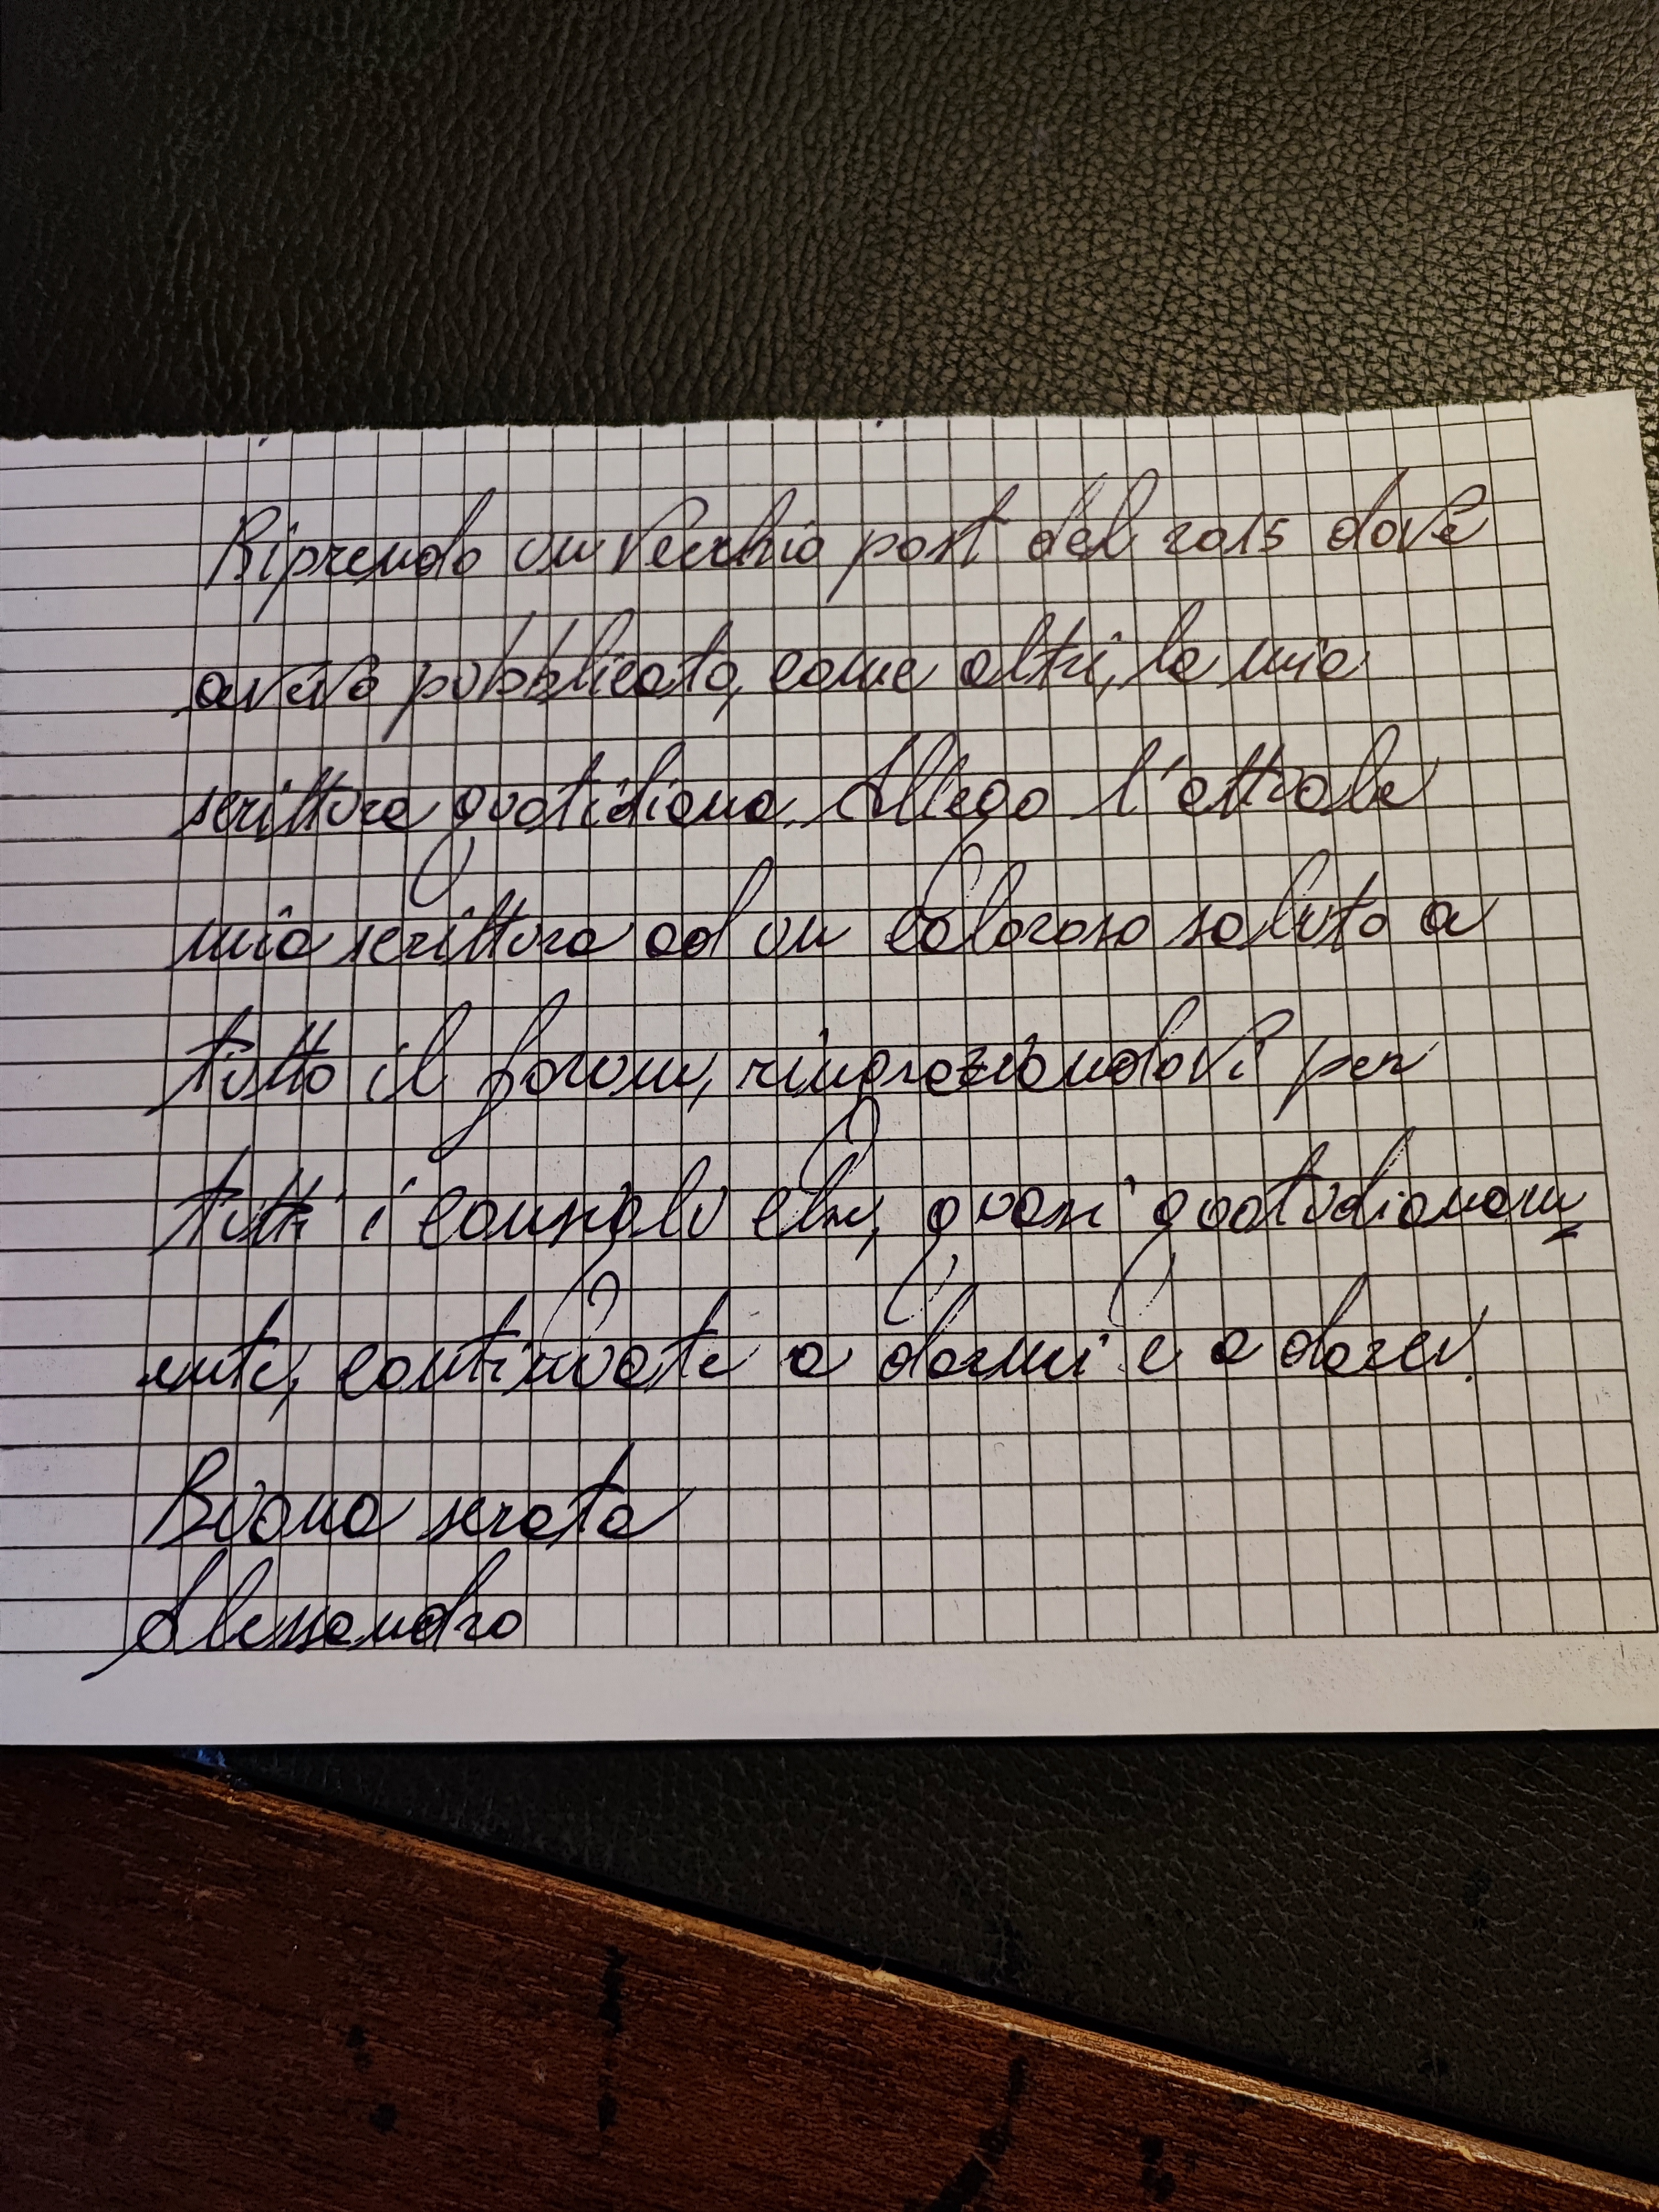 Riprendo un vecchio post del 2015 dove
avevo pubblicato, come altri, la mia
scrittura quotidiana. Allego l'attuale
mia scrittura ad un caloroso saluto a
tutto il forum, ringraziandovi per
tutti i consigli che, quasi quotidianam
ente, continuate a darmi e a darci.
Buona serata
Alessandro